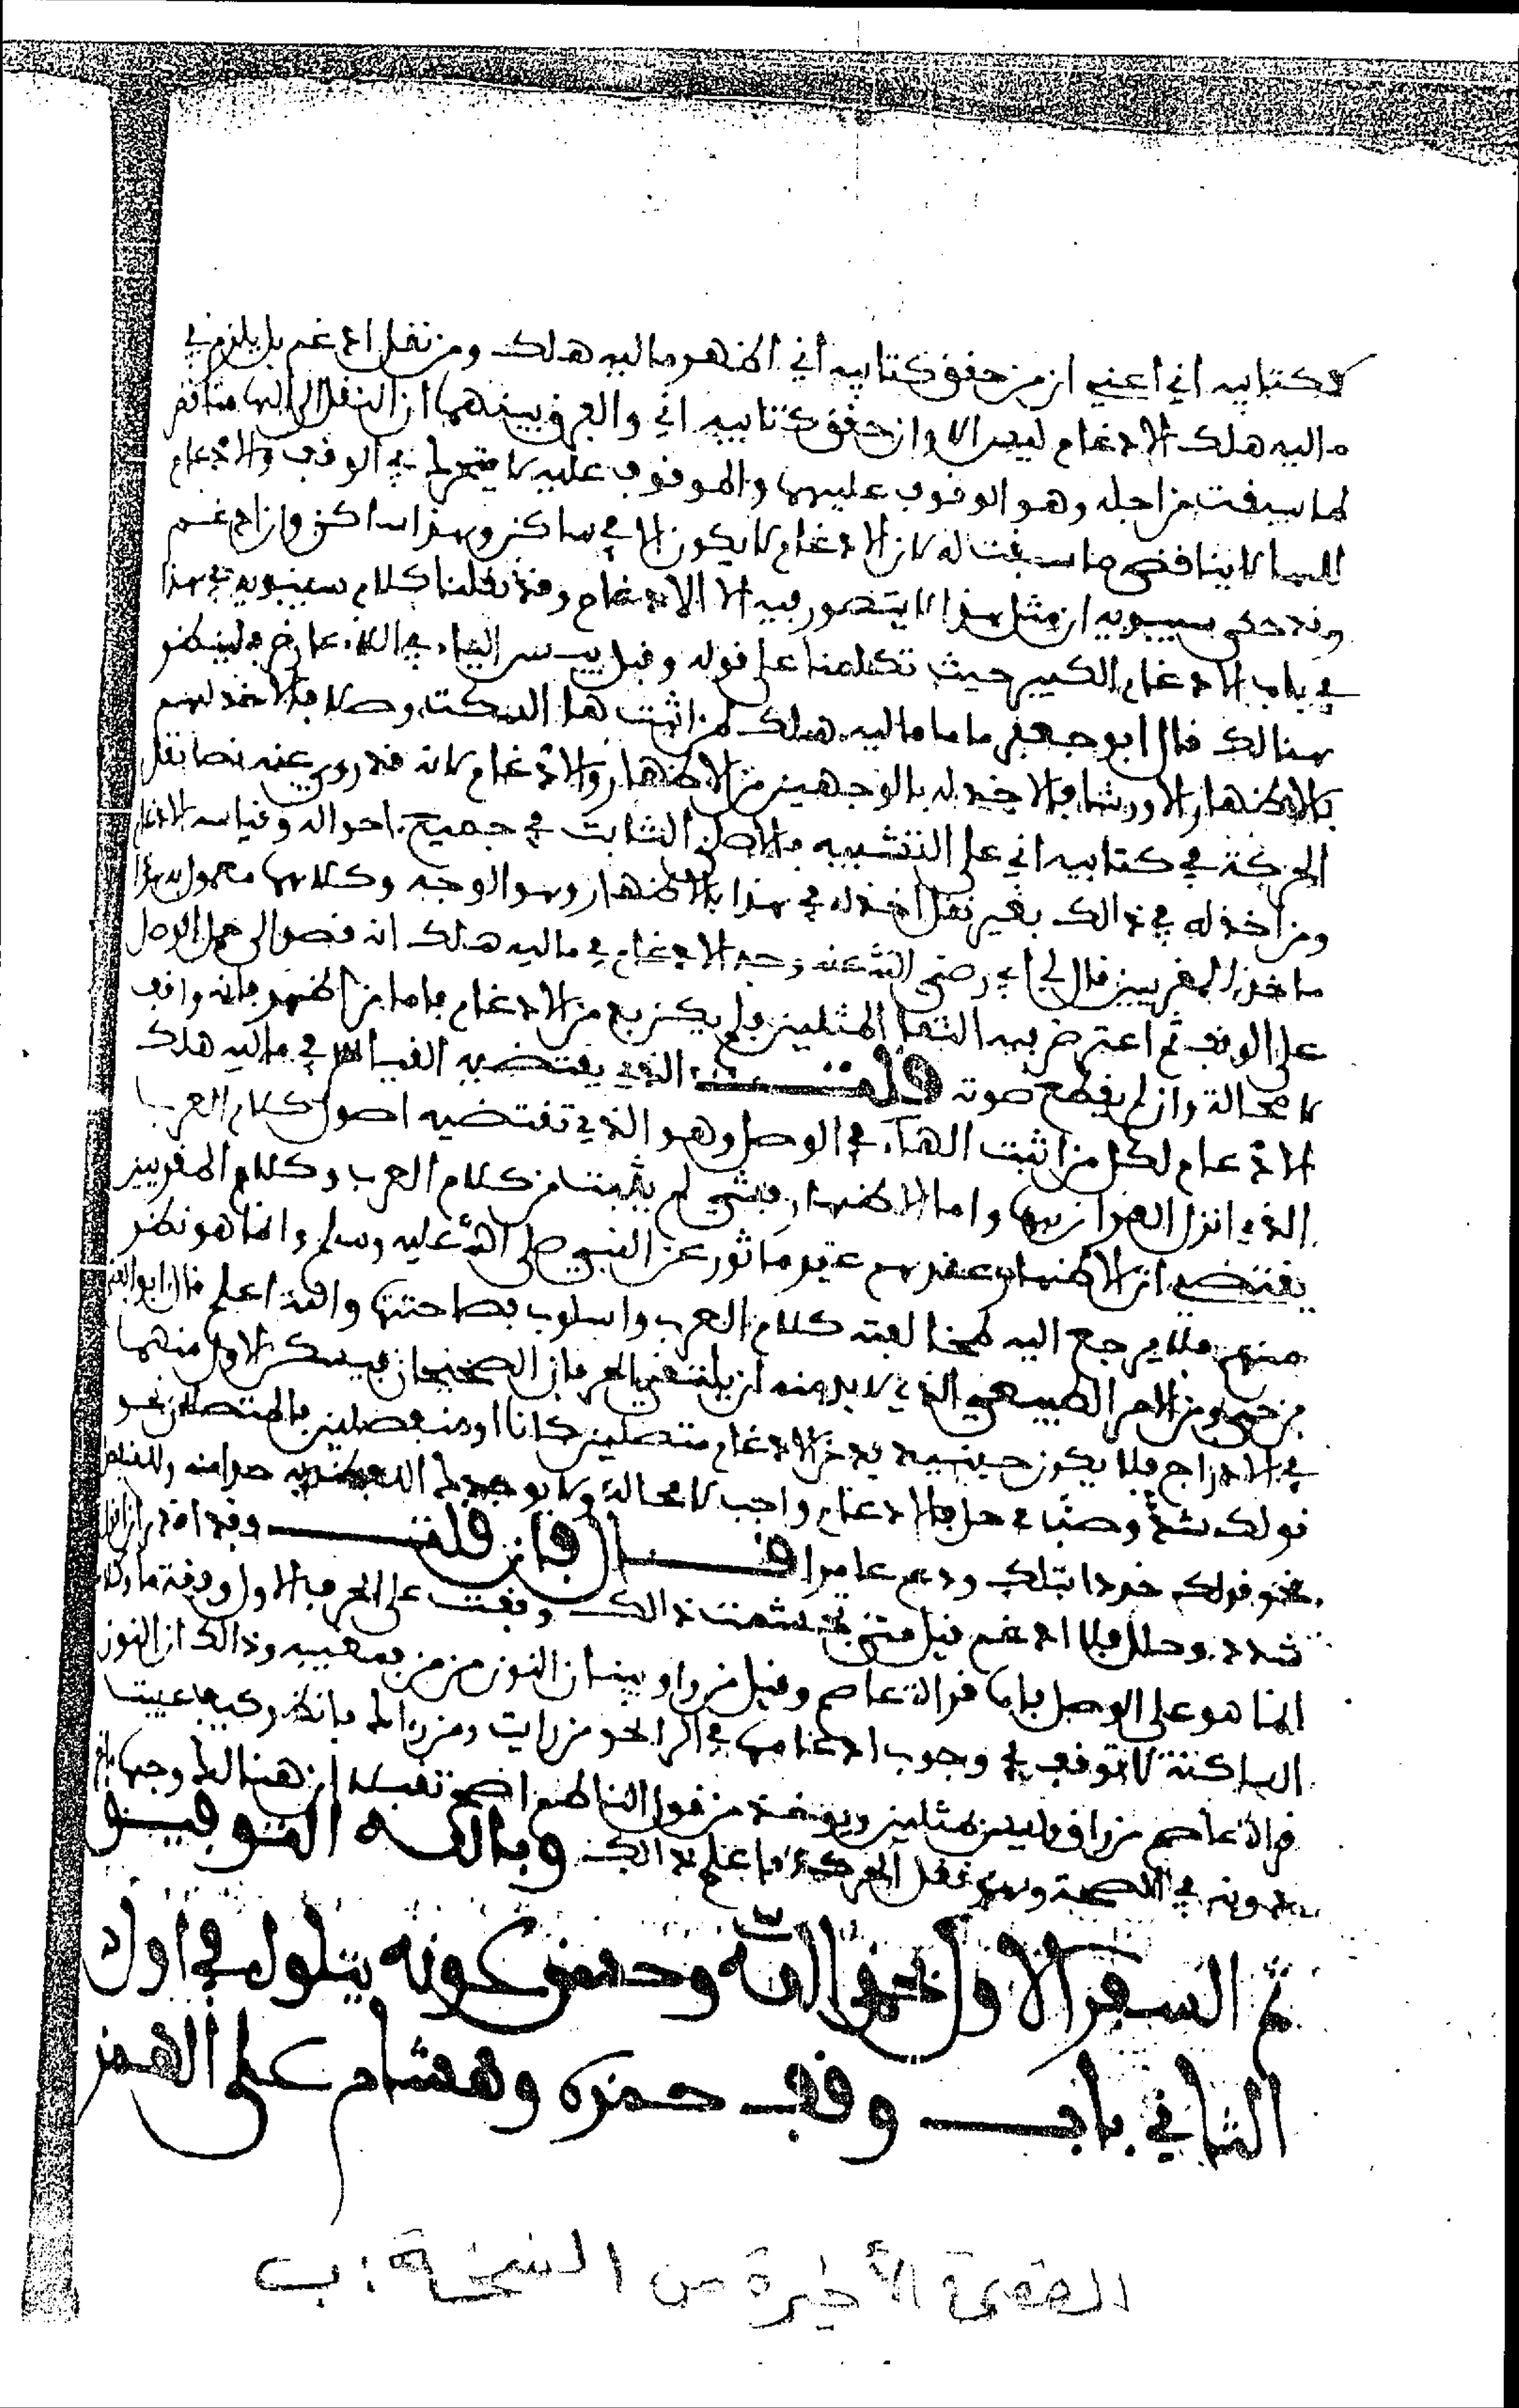 كتابيه اني اعني ان من حقق كتابيه اني اظهر ماليه هلك ومن نقل ادغم بل يلزم في
ماليه هلك الادغام ليس الا وان حقق كتابيه اني والفرق بينهما ان النقل الى الها مناقض
لما سيقت من اجله وهو الوقوف عليها والموقوف عليه لا يتحرك في الوقف والادغام
للها لا يناقض ما سيقت له لان الادغام لا يكون الا في ساكن وهذا ساكن وان ادغم
وقد حكى سيبويه ان مثل هذا لا يتصور فيه الا الادغام وقد نقلنا كلام سيبويه في هذا
في باب الادغام الكبير حيث تكلمنا على قوله وقبل يئسن الياء في اللاء عارض فلينظر
هنالك قال ابو جعفر فاما ماليه هلك لمن اثبت هاء السكت وصلا فالاخذ لهم
بالاظهار الا ورشا فالاخذ له بالوجهين من الاظهار والادغام لانه قد روي عنه نصا نقل
الحركة في كتابيه اني على التشبيه بالاصل الثابت في جميع احواله وقياسه الادغام
ومن اخذ له في ذالك بغير نقل اخذ له في هذا بالاظهار وهو الوجه وكلاهما معمول به هذا
ماخذ المقريين قال لي ابي رضي الله عنه وجه الادغام في ماليه هلك انه قصد الى حمل الوصل
على الوقف ثم اعترض فيه التقا المثلين فلم يكن بد من الادغام فاما من اظهر فانه واقف
لا محالة وان لم يقطع صوته قلت الذي يقتضيه القياس في ماليه هلك
الادغام لكل من اثبت الهاء في الوصل وهو الذي تقتضيه اصول كلام العرب
الذي انزل القرآن بها واما الاظهار فشي لم يثبت من كلام العرب وكلام المقريين
يقتضي ان الاظهار عندهم غير ماثور عن النبي صلى الله عليه وسلم وانما هو نظر
منهم فلا يرجع اليه لمخالفته كلام العرب واسلوب فصاحتها والله اعلم قال ابو الفتح
بن جني ومن الامر الطبيعي الذي لا بد منه ان يلتقي الحرفان الصحيحان فيسكن الاول منهما
في الادراج فلا يكون حينئذ بد من الادغام متصلين كانا او منفصلين فالمتصلان نحو
قولك شد وصب وحل فالادغام واجب لا محالة ولا يوجدك اللفظ به بدا منه والمنفصل
نحو قولك خذ ذا بتلك ودع عامرا قال فان قلت وقد اقدر ان اقول
شدد وحلل فلا ادغم قيل متى تجشمت ذالك وقفت على الحرف الاول وقفة ما وكلامنا
انما هو على الوصل فاما قراءة عاصم وقيل من راق ببيان النون من من فمعيب وذالك ان النون
الساكنة لا توقف في وجوب ادغامها في الرا نحو من رايت ومن رءاك فانظر وكيف عيبت
قراءة عاصم من راق وليس بمثلين ويوخذ من قول الناظم اصح تقبلا ان هنالك وجها اخر
دونه في الصحة وهو نقل الحركة فاعلم ذالك وبالله التوفيق
تم السفر الاول بحمد الله وحسن عونه يتلوه في اول
الثاني باب وقف حمزة وهشام على الهمز
الصفحة الأخيرة من النسخة : ب